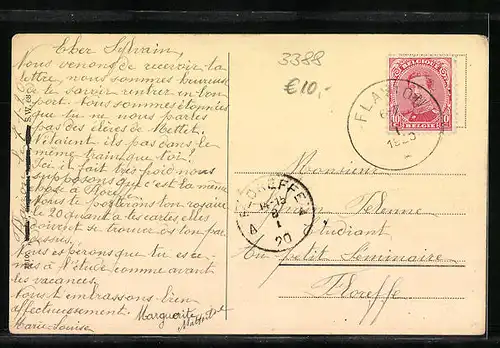 Cher Sylvain,
Nous venons de recevoir ta
lettre, nous sommes heureuses
de te savoir rentrer en bon
port. Nous sommes étonnées
que tu ne nous parles
pas des élèves de Mettet.
Etaient ils pas dans le
même train que toi?
Ici il fait très froid nous
supposons qu'c'est la même
chose à Floreffe.
Nous te posterons ton rosaire
le 20 quant à tes cartes elles
doivent se trouver ds ton par-
dessus.
Nous espérons que tu es re-
mis à l'étude comme avant
les vacances.
Nous t'embrassons bien
affectueusement. Marguerite
Marie-Louise
3388
€10,-
BELGIQUE
10 10
BELGIE
1920
FLOREFFE
14-15
8
I
20
A
Monsieur
Etudiant
Au petit Séminaire
Floreffe